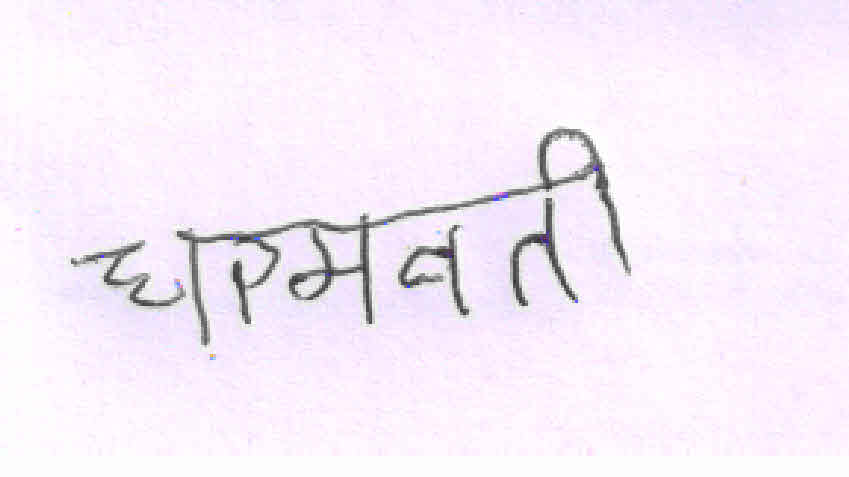 धरमवती